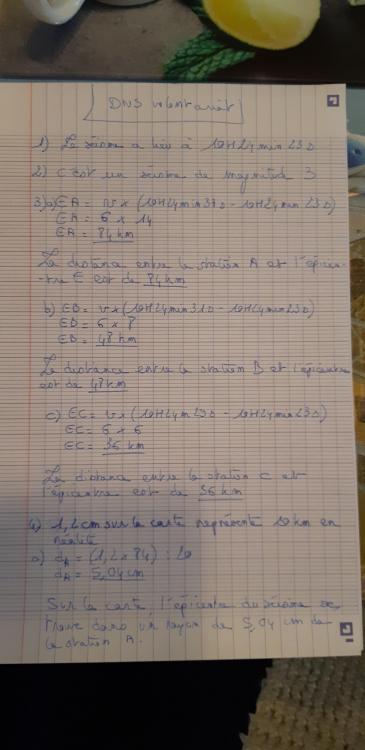 DNS volontariat
1) Le séisme a lieu à 10H24min23s
2) C'est un séisme de magnitude 3
3)a) EA = v x (10H24min37s - 10H24min23s)
EA = 6 x 14
EA = 84 km
La distance entre la station A et l'épicen-
-tre E est de 84 km
b) EB = v x (10H24min31s - 10H24min23s)
EB = 6 x 8
EB = 48 km
La distance entre la station B et l'épicentre
est de 48 km
c) EC = v x (10H24m29s - 10H24min23s)
EC = 6 x 6
EC = 36 km
La distance entre la station C et
l'épicentre est de 36 km
4) 1,2 cm sur la carte représente 20 km en
réalité
a) dA = (1,2 x 84) : 20
dA = 5,04 cm
Sur la carte, l'épicentre du séisme se
trouve dans un rayon de 5,04 cm de
la station A.